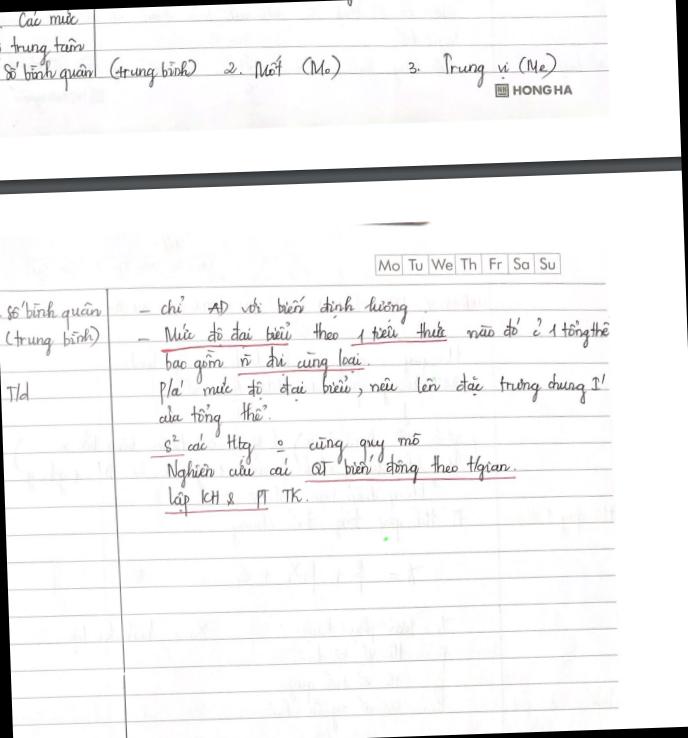 Các mức
trung tâm
Số bình quân (trung bình) 2. Mốt (Mo) 3. Trung vị (Me)
HONG HA
Mo Tu We Th Fr Sa Su
Số bình quân - chỉ AD với biến định lượng
(trung bình) - Mức độ đại biểu theo 1 tiêu thức nào đó ở 1 tổng thể
bao gồm n̄ đvi cùng loại.
T/d P/á mức độ đại biểu, nêu lên đặc trưng chung I'
của tổng thể.
S² các Htg o cùng quy mô
Nghiên cứu cái QT biến động theo t/gian.
lập KH & PT TK.